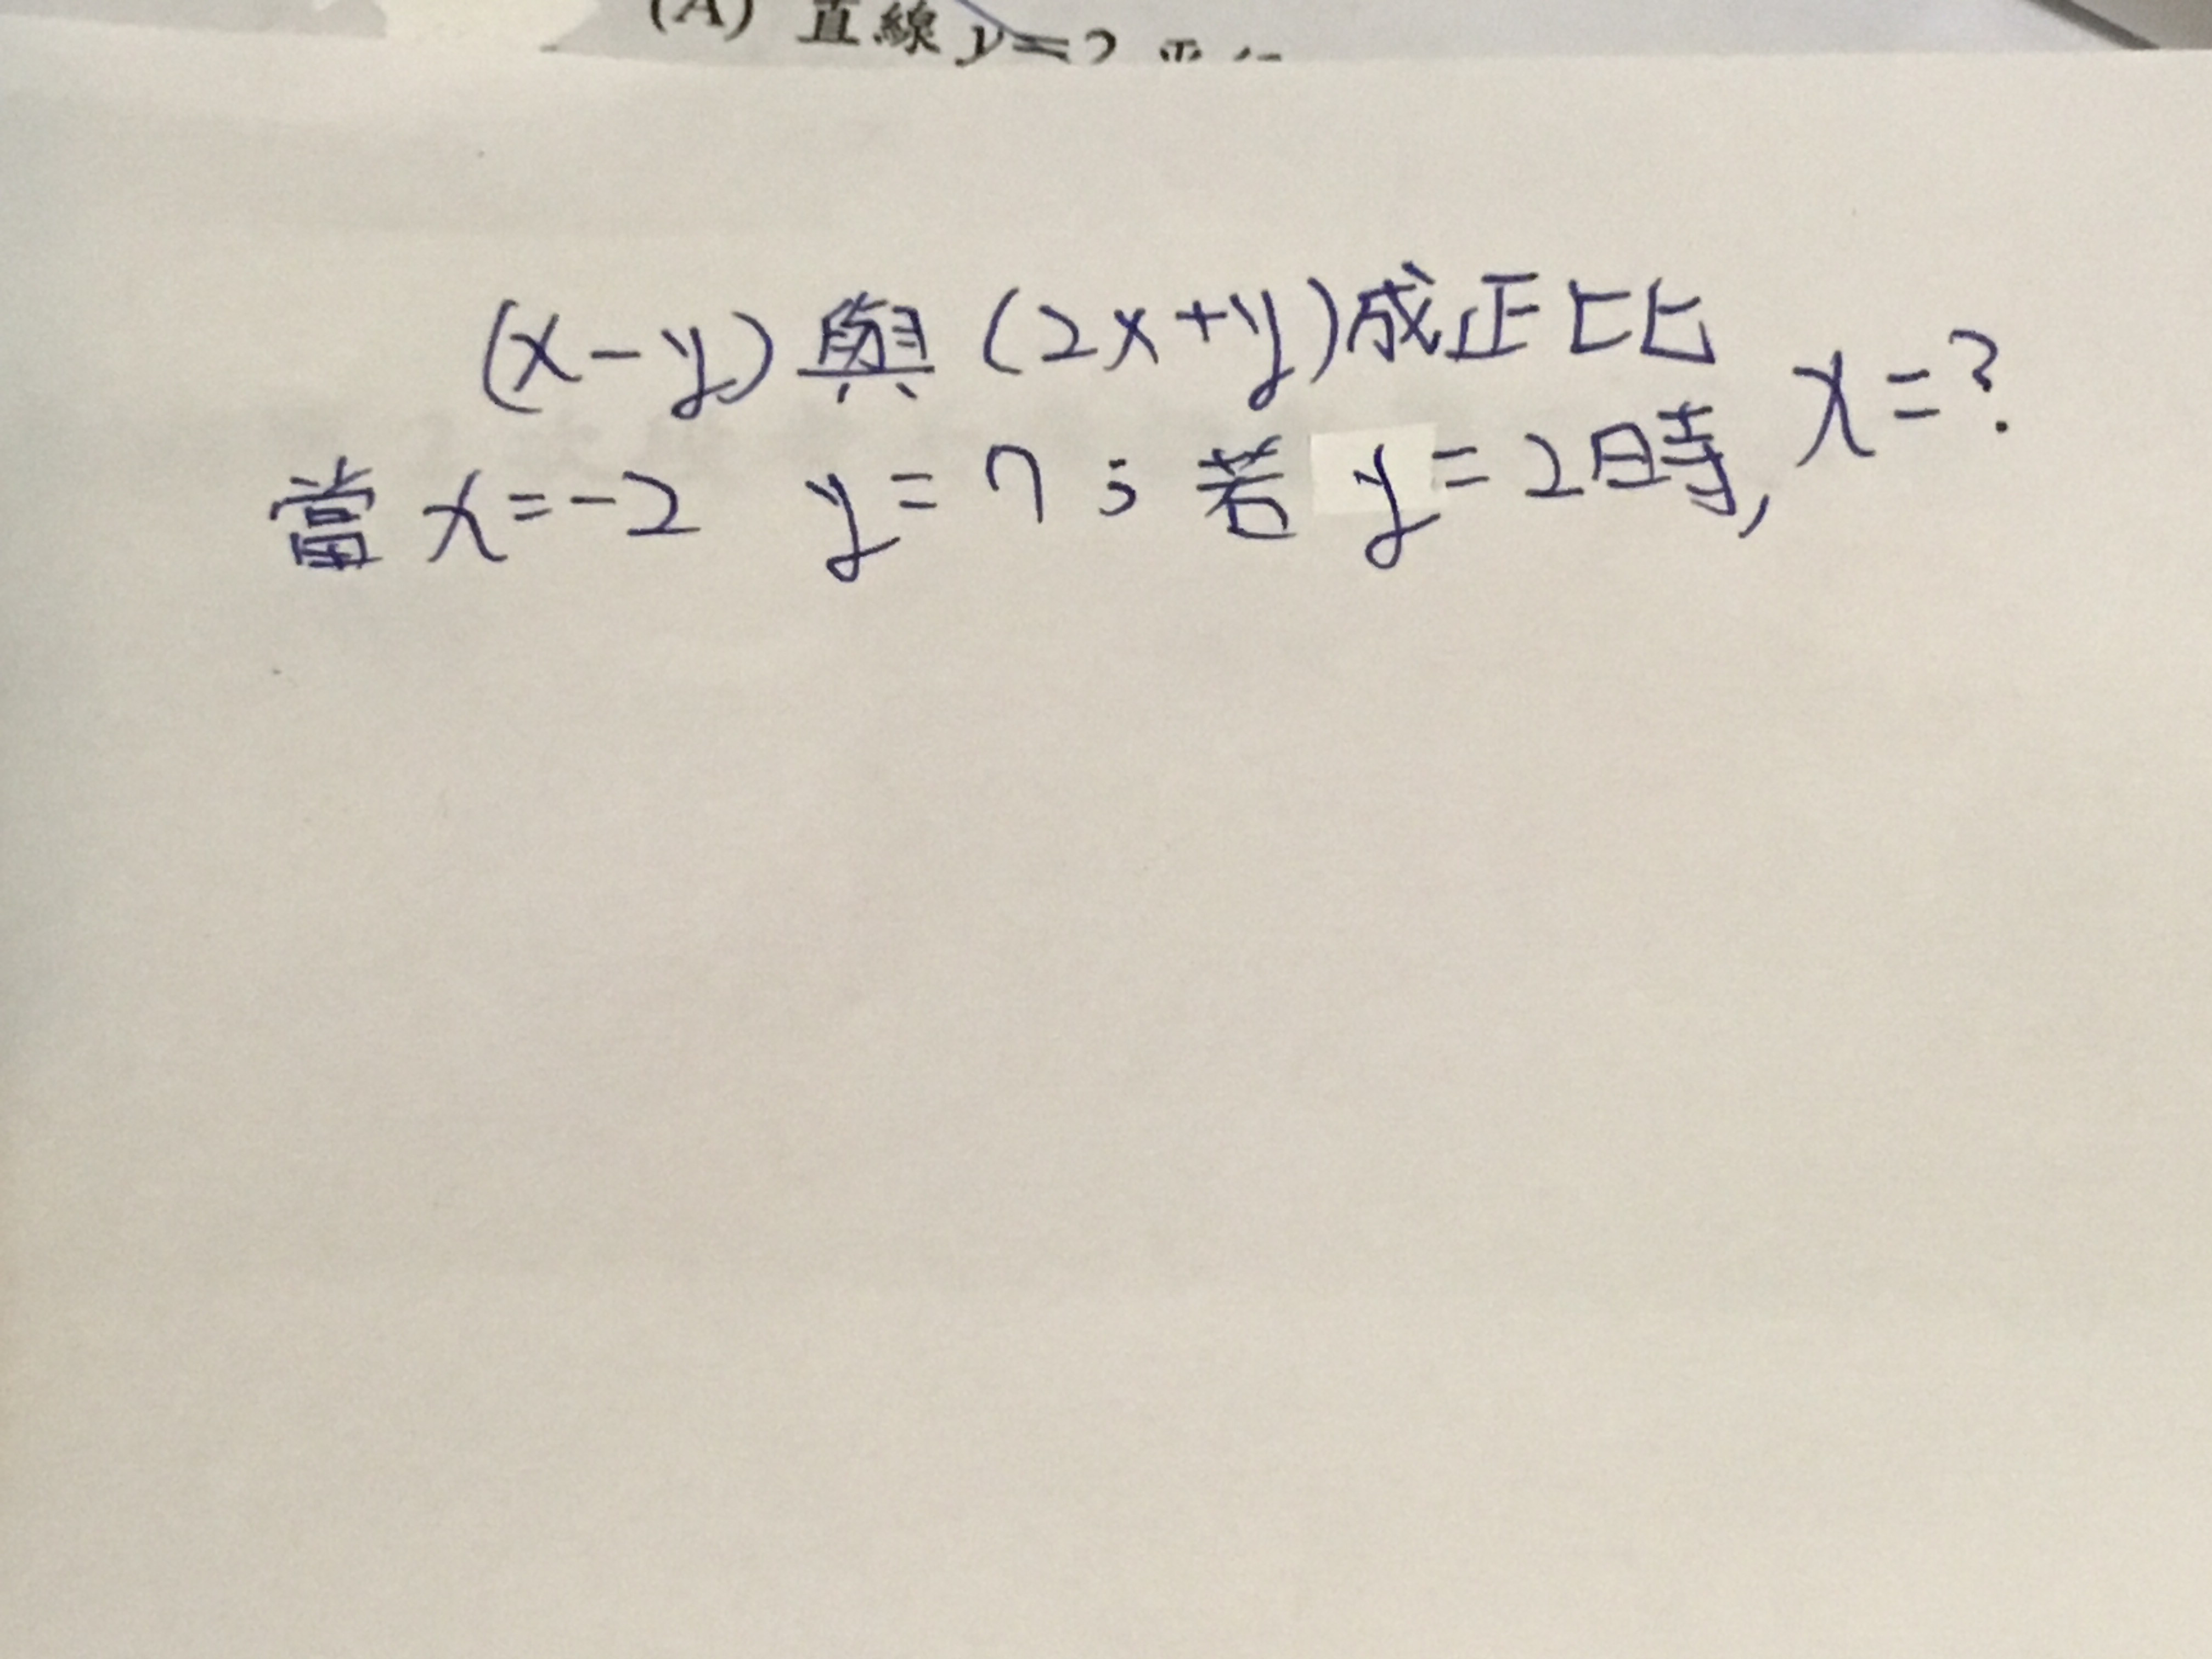 (A) 直線 y=2
(x-y)與(2x+y)成正比
當x=-2 y=7;若y=2時, x=?